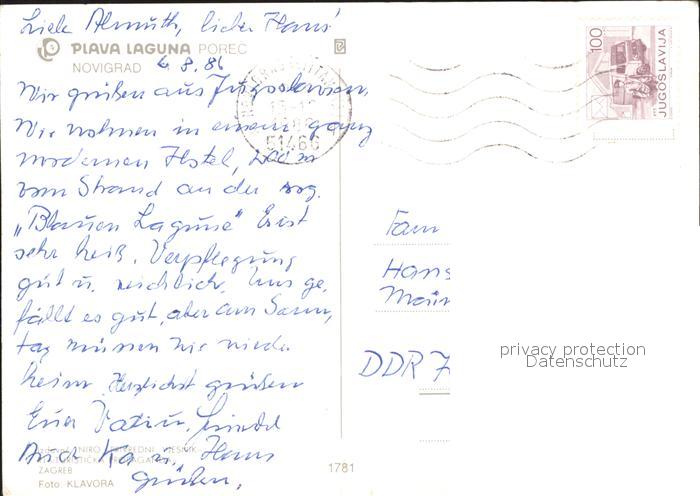 Liebe Almuth, lieber Hans!
PLAVA LAGUNA POREC
NOVIGRAD 6.8.86
Wir grüßen aus Jugoslawien,
Wir wohnen in einem ganz
modernen Hotel, 200 m
vom Strand an der sog.
„Blauen Lagune" Es ist
sehr heiß. Verpflegung
gut u. reichlich. Uns ge,
fällt es gut, aber am Sonn,
tag müssen wir wieder
heim. Herzlichst grüßen
Eure
Auch Ka u. Hans
grüßen,
ZAGREB
Foto: KLAVORA
1781
51466
100
JUGOSLAVIJA
Fam
Hans
Main
DDR 7
privacy protection
Datenschutz